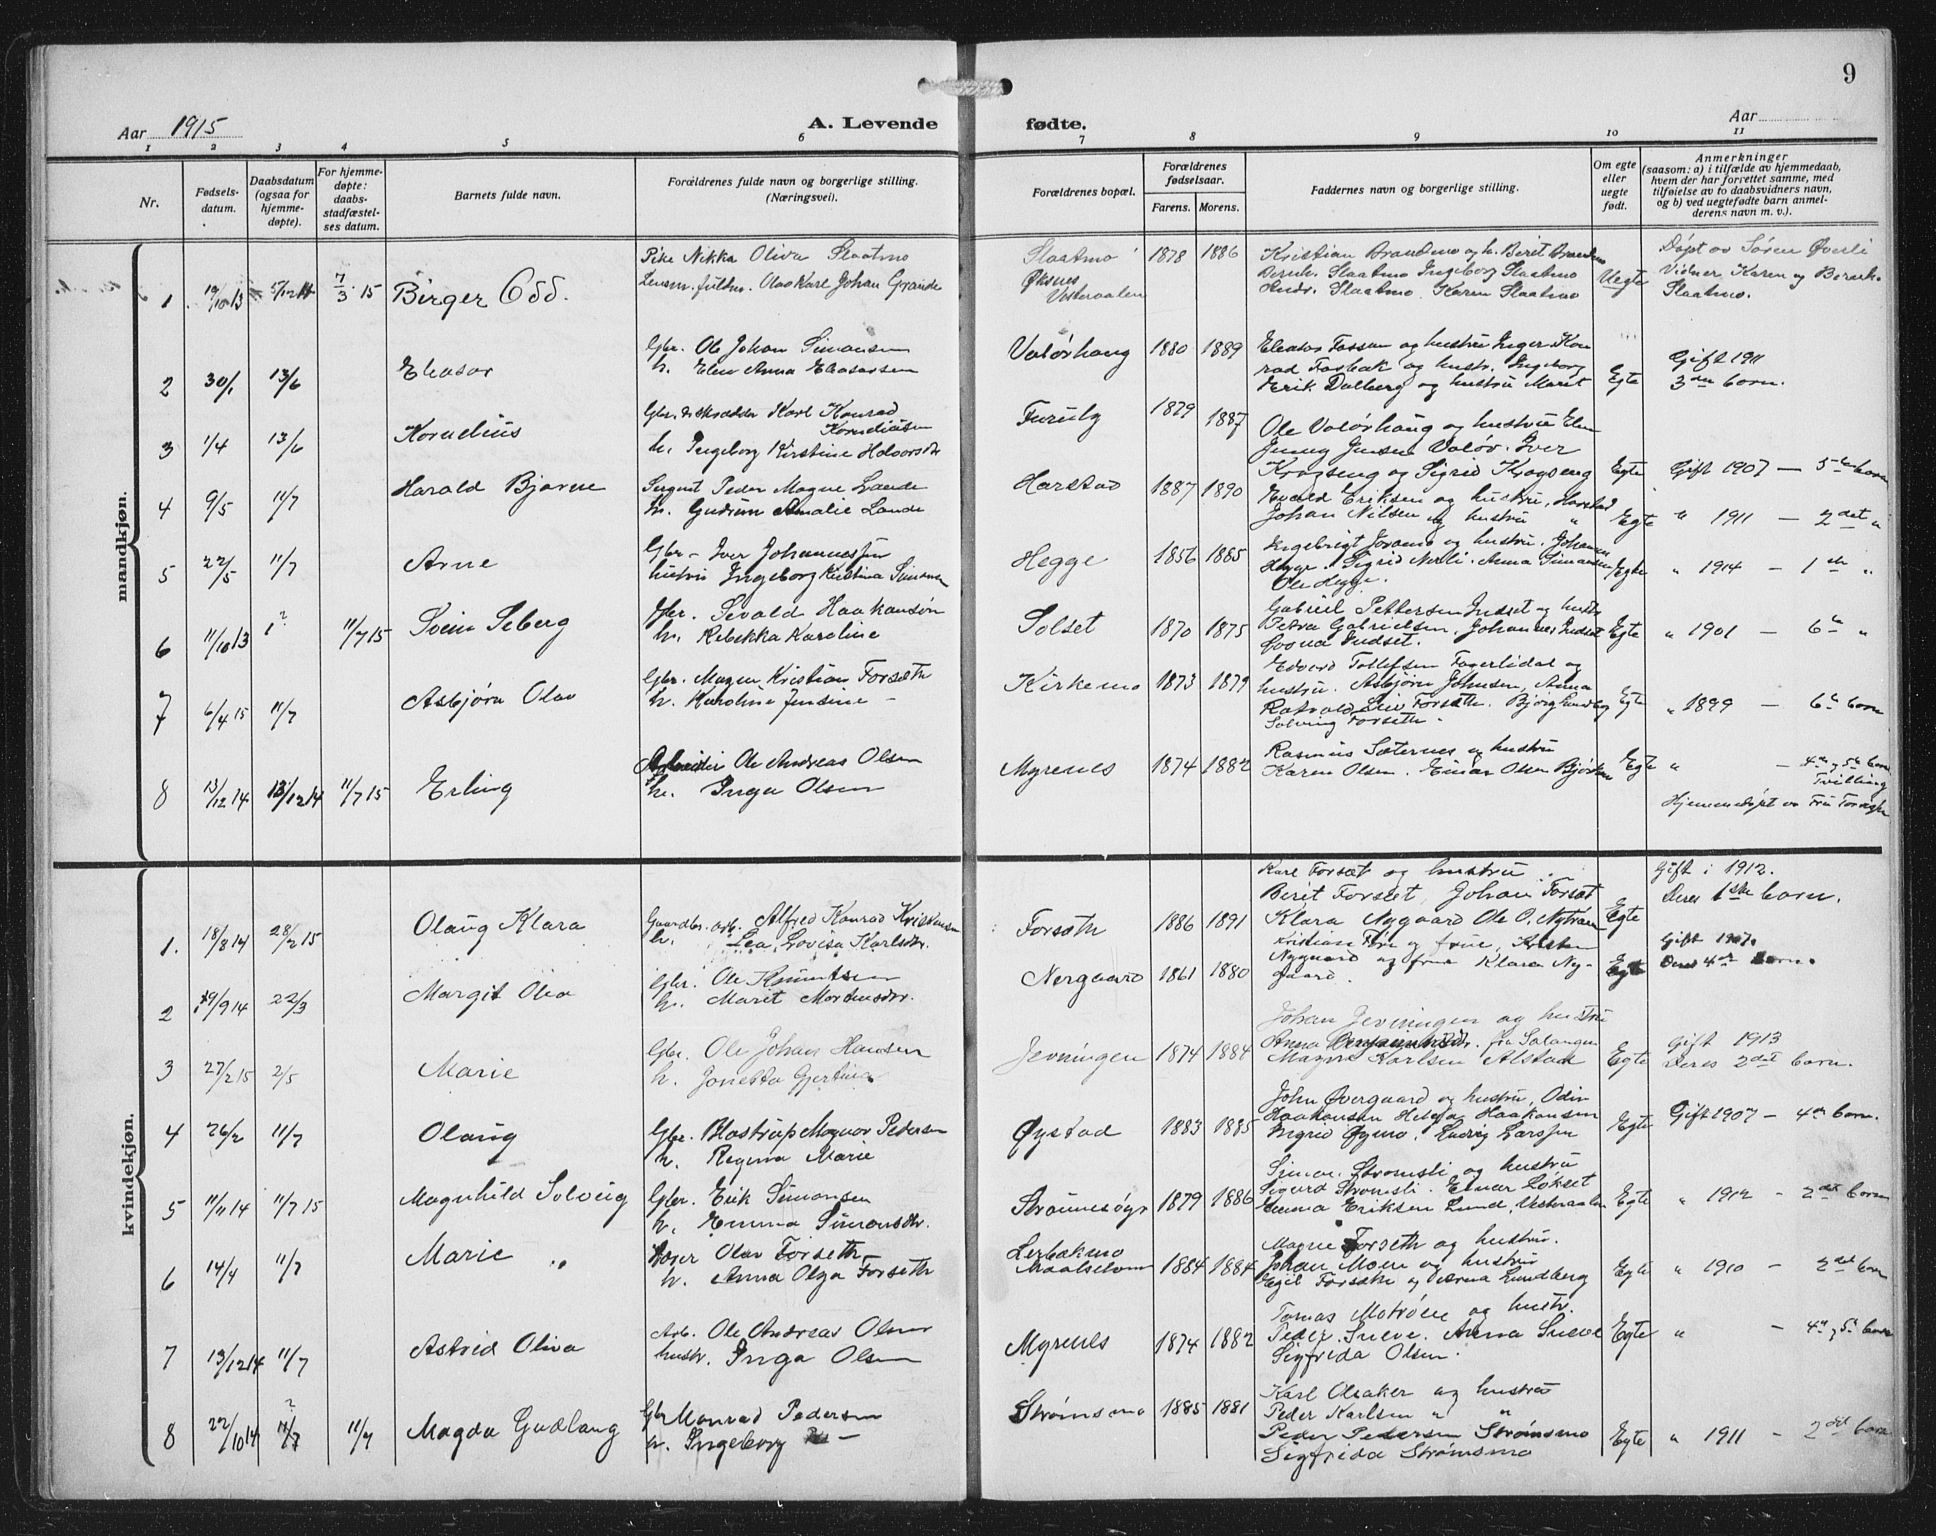 9
Aar 1915
A. Levende fødte.
Aar
1 2 3 4 5 6 7 8 9 10 11
Nr.
Fødsels-
datum.
Daabsdatum
(ogsaa for
hjemme-
døpte).
For hjemme-
døpte:
daabs-
stadfæstel-
ses datum.
Barnets fulde navn.
Forældrenes fulde navn og borgerlige stilling.
(Næringsvei).
Forældrenes bopæl.
Forældrenes
fødselsaar.
Farens. Morens.
Faddernes navn og borgerlige stilling.
Om egte
eller
uegte
født.
Anmerkninger
(saasom: a) i tilfælde av hjemmedaab,
hvem der har forrettet samme, med
tilføielse av to daabsvidners navn,
og b) ved uegtefødte barn anmel-
derens navn m. v.).
mandkjøn.
1 19/10 13 5/12 14 7/3 15 Birger Odd.
Pike Nikka Oliva Slaatmo
Lensm. fuldm. Olaf Karl Johan Grande
Slaatmo
Øksnes
Vesteraalen
1878 1886
Kristian Brandmo og h. Berit Brandmo
Bernh. Slaatmo Ingeborg Slaatmo
Hndr. Slaatmo, Karen Slaatmo
Uegte
Døpt av Søren Øverli
Vidner Karen og Bernh.
Slaatmo.
2 30/1 13/6 Eleasar
Gbr. Ole Johan Simonsen
h. Elen Anna Eleasarsen
Valørhaug 1880 1889
Eleasar Fossen og hustru Inger Kon
rad Fosbak og hustr. Ingeborg
Erik Dalberg og hustru Marit
Egte
Gift 1911
3die barn.
3 1/4 13/6 Kornelius
Gbr. & skrædder Karl Konrad
Korneliusen
h. Ingeborg Kirstine Halvorsdtr
Furuly 1879 1887
Ole Valørhaug og hustru Elen
Jenny Jensen Valør. Iver
Krogseng og Sigrid Krogseng
Egte
Gift 1907 — 5te barn
4 9/5 11/7 Harald Bjarne
Sergent Peder Magne Lande
h. Gudrun Amalie Lande
Harstad 1887 1890
Edvald Eriksen og hustru, Harstad
Johan Nilsen og hustru "
Egte
" 1911 — 2det "
5 22/5 11/7 Arne
Gbr. Iver Johannessen
hustru Ingeborg Kristina Simonsen
Hegge 1856 1885
Ingebrigt Joramo og hustru. Johannes
Hegge. Sigrid Nerli. Anna Simonsen
Ole Hegge.
Egte
" 1914 — 1ste "
6 11/10 13 ? 11/7 15 Svein Seberg
Gbr. Sevald Haakonsøn
h. Rebekka Karoline
Solset 1870 1875
Gabriel Pettersen Indset og hustr
Petra Gabrielsen, Johannes Indset
Indset.
Egte
" 1901 — 6te "
7
7 6/4 15 11/7 Asbjørn Olav
Gbr. Magnus Kristian Forseth
h. Karoline Jensine
Kirkemo 1873 1879
Edvard Tollefsen Fagerlidal og
hustru. Asbjørn Johnsen, Anna
Rotvold Liv Forseth. Bjørg Lundberg
Solveig Forseth.
Egte
" 1899 — 6te barn
8 13/12 14 13/12 14 11/7 15 Erling
Arbeider Ole Andreas Olsen
h. Inga Olsen
Myrenes 1874 1882
Rasmus Sæternes og hustru
Karen Olsen. Einar Olsen Bjørken
Egte
" — 4de og 5te barn
Tvilling
Hjemmedøpt av Fru
kvindekjøn.
1. 18/8 14 28/2 15 Olaug Klara
Gaardbr. arb. Alfred Konrad Kristiansen
h. Lea Lovisa Karlsdtr.
Forseth 1886 1891
Karl Forsæt og hustru
Berit Forsæt, Johan Forsæt
Klara Nygaard Ole O. Nytrøen
Egte
Gift i 1912.
Deres 1ste barn.
2 19/9 14 22/3 Margit Olea
Gbr. Ole Knuntsen
h. Marit Mortensdtr.
Nergaard 1861 1880
Kristian og frue, Kristen
Nygaard og frue Klara Ny-
gaard.
Egte
Gift 1907.
Deres 4de barn.
3 27/2 15 2/5 Marie
Gbr. Ole Johan Hansen
h. Jonetta Gjertina
Jevningen 1874 1884
Johan Jevningen og hustru
Anna Benjaminsdtr. fra Salangen
Magne Karlsen Alstad
Egte
Gift 1913
Deres 2det barn.
4 26/2 11/7 Olaug
Gbr. Hastrup Magnor Pedersen
h. Regina Marie
Øystad 1883 1885
John Øvergaard og hustru, Odin
Haakonsen Helga Haakonsen
Ingrid Øymo, Ludvig Larssen
Egte
Gift 1907 — 4de barn.
5 11/11 14 11/7 15 Magnhild Solveig
Gbr. Erik Simonsen
h. Emma Simonsdtr.
Strømsøyr 1879 1886
Simon Strømsli og hustru
Sigurd Strømsli. Einar Løkset
Emma Eriksen Lund, Vesteraalen
Egte
" 1912 — 2det barn
6 14/4 11/7 Marie "
Bager Olav Forseth
h. Anna Olga Forseth
Lerbakmo
Maalselven
1884 1884
Magne Forseth og hustru.
Johan Moen og hustru
Egil Forseth og Verna Lundberg
Egte
" 1910 — 2det barn
7 13/12 14 11/7 Astrid Oliva
Arb. Ole Andreas Olsen
hustr. Inga Olsen
Myrenes 1874 1882
Tomas Motrøen og hustr.
Peder Sneve. Anna Sneve
Sigfrida Olsen.
Egte
" — 4de og 5te barn
8 22/10 14 ? 11/7 11/7 Magda Gudlaug
Gbr Monrad Pedersen
h. Ingeborg —
Strømsmo 1885 1881
Karl Olsaker og hustru
Peder Karlsen " "
Peder Pedersen Strømsmo
Sigfrida Strømsmo
Egte
" 1911 — 2det barn